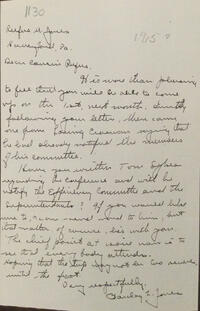 1130
1915?
Rufus M. Jones
Haverford, Pa.
Dear Cousin Rufus,
It is more than pleasing
to feel that you will be able to come
up on the last, next month. Shortly
following your letter, there came
one from saying that
he had already notified the members
of his committee.
Have you written Tom
regarding the Conference and will he
notify the Committee and the
Superintendents? If you would like
me to, send word to him, but
that matter, of course, lies with you.
The chief point at issue now is to
see that every body attends.
Hoping that the may not be too severe
until the first.
Very respectfully,
Jones